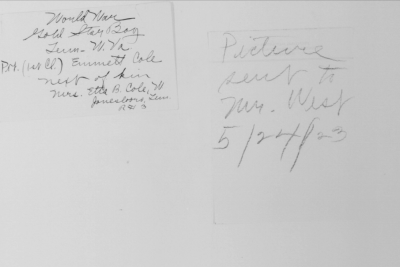 World War
Gold Star Boy
Tenn. W. Va
Pvt. (1st Cl.) Emmett Cole
next of kin
Mrs. Etta B. Cole, W
Jonesboro, Tenn
Picture
sent to
Mr. West
5/24/23